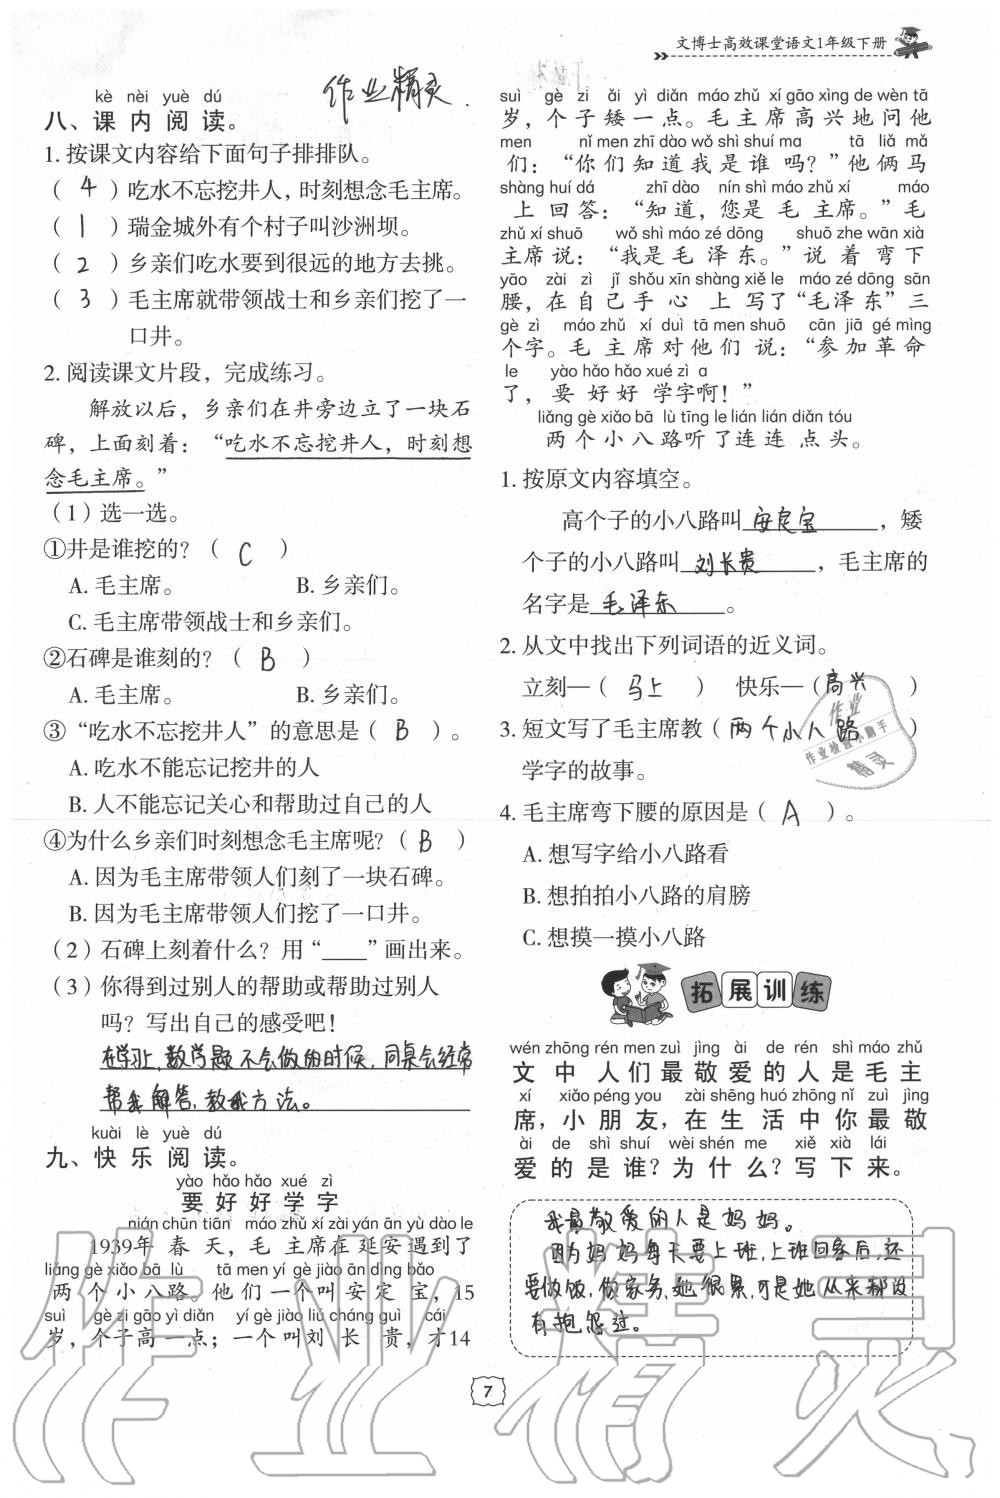 文博士高效课堂语文1年级下册
作业精灵
kè nèi yuè dú
八、课内阅读。
1. 按课文内容给下面句子排排队。
（ 4 ）吃水不忘挖井人，时刻想念毛主席。
（ 1 ）瑞金城外有个村子叫沙洲坝。
（ 2 ）乡亲们吃水要到很远的地方去挑。
（ 3 ）毛主席就带领战士和乡亲们挖了一
口井。
2. 阅读课文片段，完成练习。
解放以后，乡亲们在井旁边立了一块石
碑，上面刻着：“吃水不忘挖井人，时刻想
念毛主席。”
（1）选一选。
①井是谁挖的？（ C ）
A. 毛主席。 B. 乡亲们。
C. 毛主席带领战士和乡亲们。
②石碑是谁刻的？（ B ）
A. 毛主席。 B. 乡亲们。
③“吃水不忘挖井人”的意思是（ B ）。
A. 吃水不能忘记挖井的人
B. 人不能忘记关心和帮助过自己的人
④为什么乡亲们时刻想念毛主席呢？（ B ）
A. 因为毛主席带领人们刻了一块石碑。
B. 因为毛主席带领人们挖了一口井。
（2）石碑上刻着什么？用“____”画出来。
（3）你得到过别人的帮助或帮助过别人
吗？写出自己的感受吧！
在学习上，数学题不会做的时候，同桌会经常
帮我解答，教我方法。
kuài lè yuè dú
九、快乐阅读。
yào hǎo hǎo xué zì
要好好学字
nián chūn tiān máo zhǔ xí zài yán ān yù dào le
1939年 春天，毛主席在延安遇到了
liǎng gè xiǎo bā lù tā men yí gè jiào ān dìng bǎo
两个小八路。他们一个叫安定宝，15
suì gè zi gāo yì diǎn yí gè jiào liú cháng guì cái
岁，个子高一点；一个叫刘长贵，才14
suì gè zi ǎi yì diǎn máo zhǔ xí gāo xìng de wèn tā
岁，个子矮一点。毛主席高兴地问他
men nǐ men zhī dào wǒ shì shuí ma tā liǎ mǎ
们：“你们知道我是谁吗？”他俩马
shàng huí dá zhī dào nín shì máo zhǔ xí máo
上回答：“知道，您是毛主席。”毛
zhǔ xí shuō wǒ shì máo zé dōng shuō zhe wān xià
主席说：“我是毛泽东。”说着弯下
yāo zài zì jǐ shǒu xīn shàng xiě le máo zé dōng sān
腰，在自己手心上写了“毛泽东”三
gè zì máo zhǔ xí duì tā men shuō cān jiā gé mìng
个字。毛主席对他们说：“参加革命
le yào hǎo hǎo xué zì a
了，要好好学字啊！”
liǎng gè xiǎo bā lù tīng le lián lián diǎn tóu
两个小八路听了连连点头。
1. 按原文内容填空。
高个子的小八路叫 安定宝 ，矮
个子的小八路叫 刘长贵 ，毛主席的
名字是 毛泽东 。
2. 从文中找出下列词语的近义词。
立刻—（ 马上 ） 快乐—（ 高兴 ）
3. 短文写了毛主席教（ 两个小八路 ）
学字的故事。
4. 毛主席弯下腰的原因是（ A ）。
A. 想写字给小八路看
B. 想拍拍小八路的肩膀
C. 想摸一摸小八路
作业
作业检查小助手
精灵
拓展训练
wén zhōng rén men zuì jìng ài de rén shì máo zhǔ
文中人们最敬爱的人是毛主
xí xiǎo péng you zài shēng huó zhōng nǐ zuì jìng
席，小朋友，在生活中你最敬
ài de shì shuí wèi shén me xiě xià lái
爱的是谁？为什么？写下来。
我最敬爱的人是妈妈。
因为妈妈每天要上班，上班回家后，还
要做饭，做家务，她很累，可是她从来都没
有抱怨过。
7
作业精灵